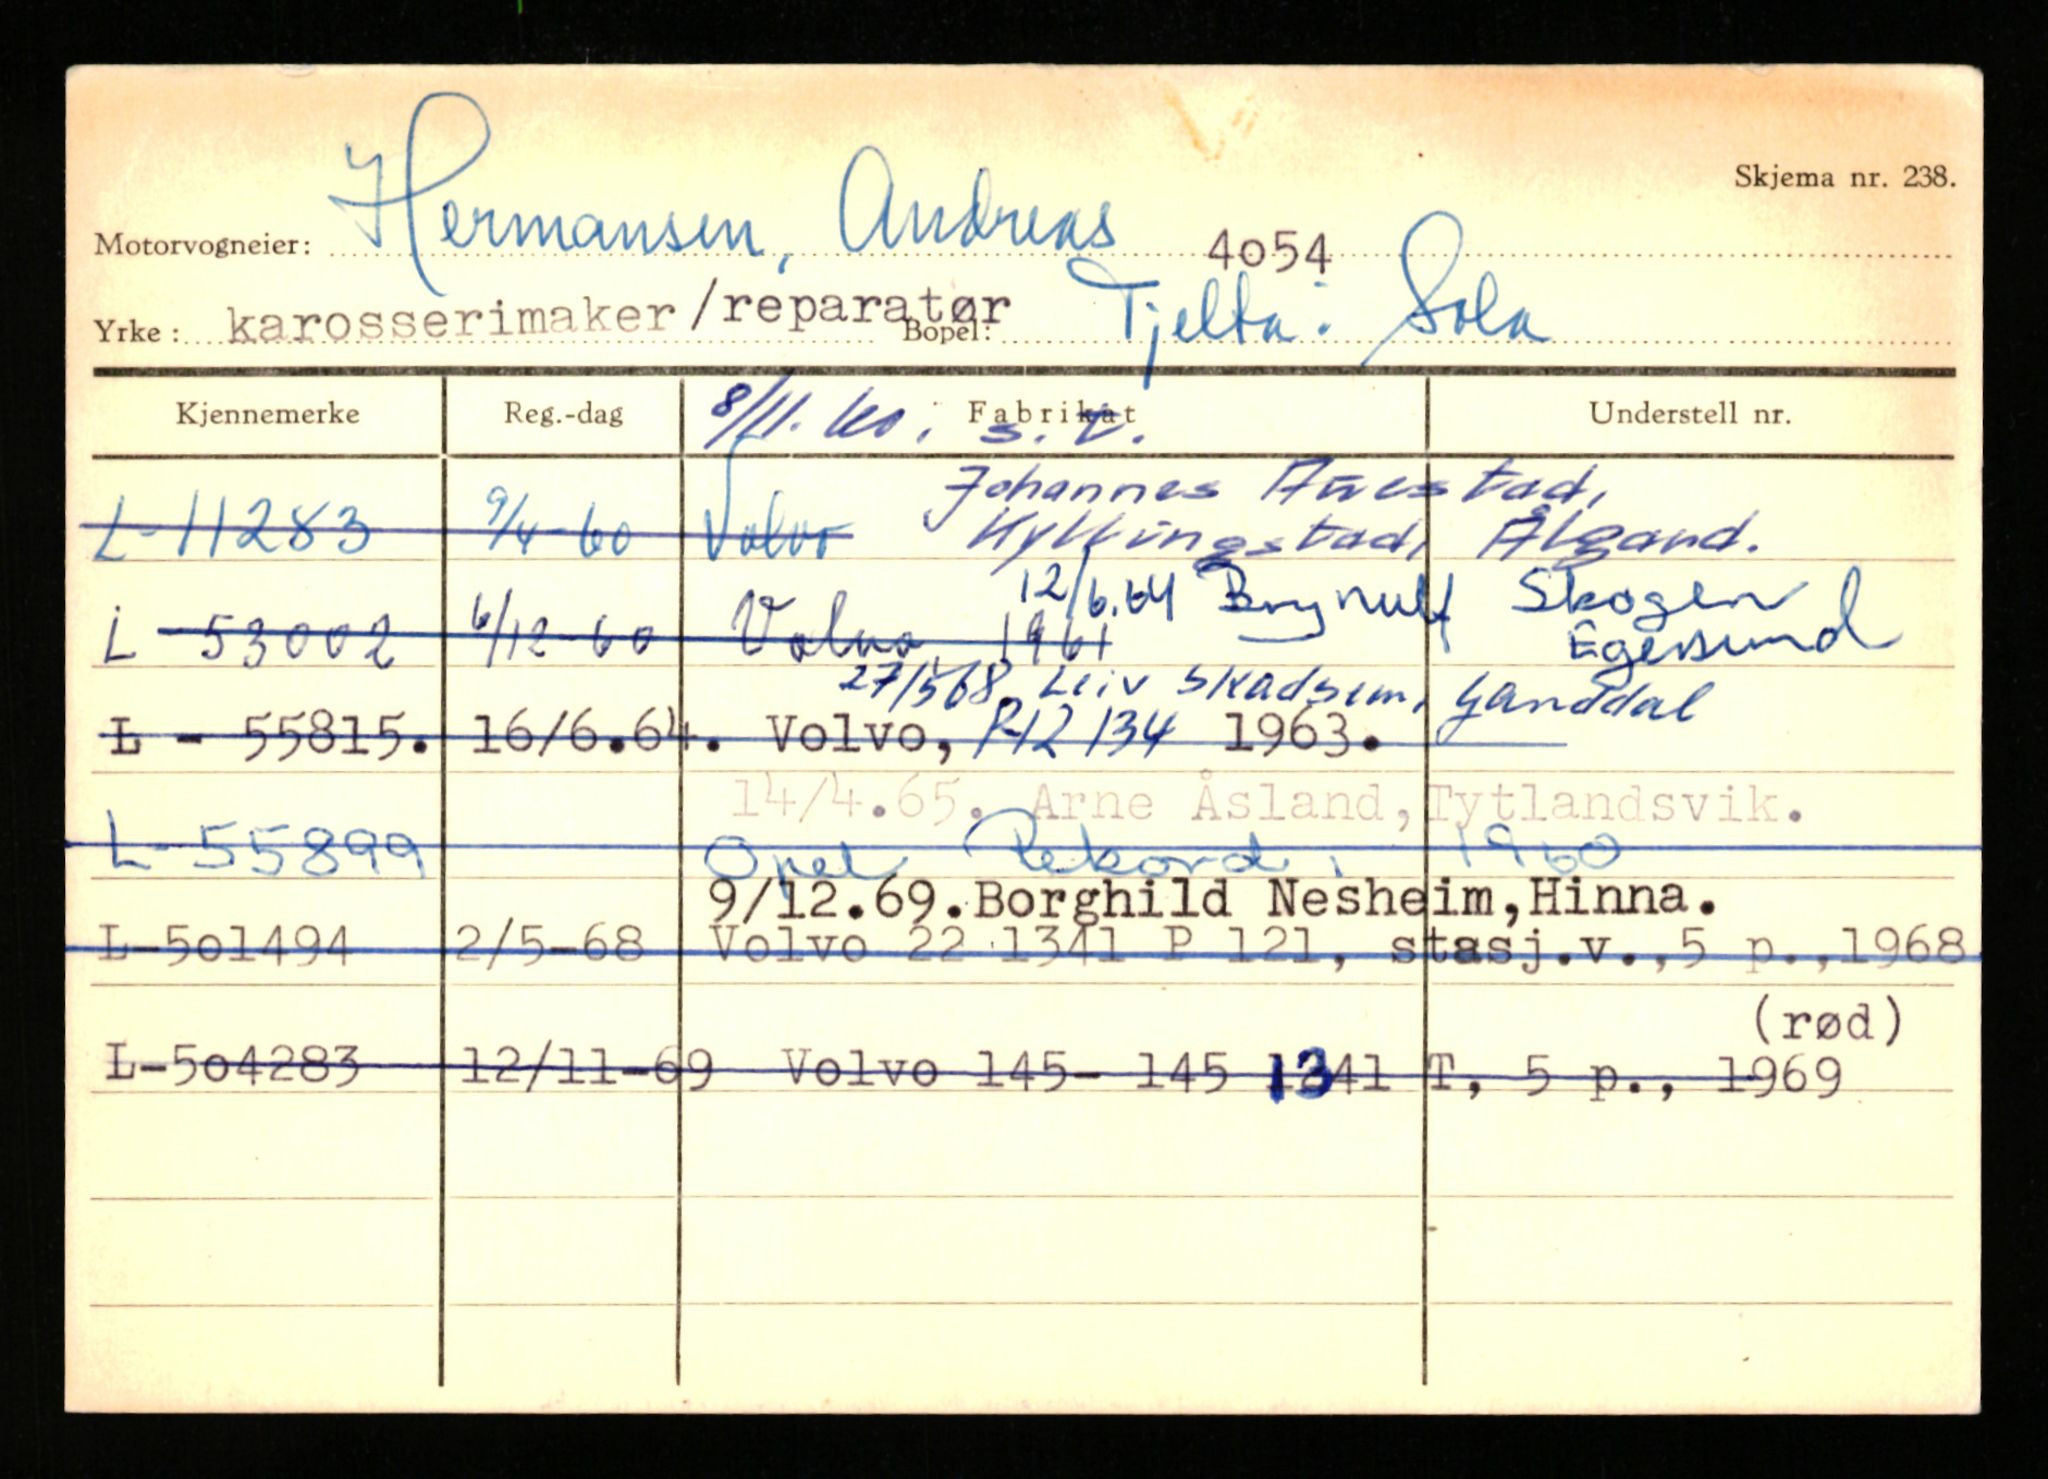 Skjema nr. 238.
Motorvogneier: Hermansen, Andreas
4054
Yrke: karosserimaker/reparatør Bopel: Tjelta. Sola
Kjennemerke Reg.-dag Fabrikat Understell nr.
8/11.60. s. v.
Johannes Auestad,
L-11283 9/4-60 Volvo Kyllingstad, Ålgård.
12/6.64 Brynulf Skogen
L-53002 6/12-60 Volvo, 1961 Egersund
27/5 68 Leiv Skadsem, Ganddal
L - 55815. 16/6.64. Volvo, P-12134 1963.
14/4.65. Arne Åsland, Tytlandsvik.
L-55899 Opel Rekord, 1960
9/12.69.Borghild Nesheim,Hinna.
L-501494 2/5-68 Volvo 22 1341 P 121, stasj.v.,5 p.,1968
(rød)
L-504283 12/11-69 Volvo 145- 145 1341 T, 5 p., 1969